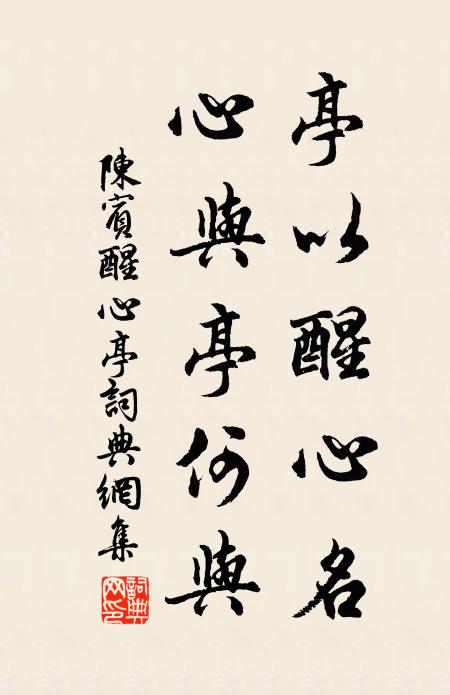 亭以醒心名
心與亭何與
陳賓醒心亭詞典網集
詞典网印